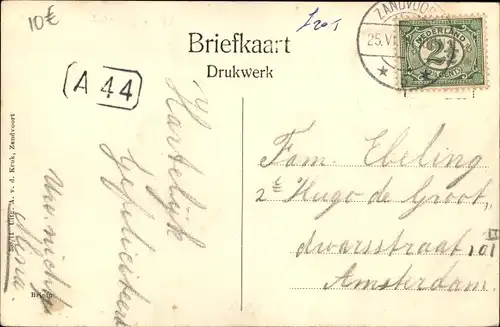 10€
ZANDVOORT
25.V
NEDERLAND
2½
CENT
Briefkaart
Drukwerk
A 44
Hartelijk
Gefeliciteerd
Uw nichtje
Mina.
Fam. Ebeling
2e Hugo de Groot,
dwarsstraat 101
Amsterdam.
Uitg. A. v. d. Kruk, Zandvoort